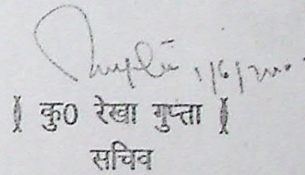 1/6/2000
⟬ कु0 रेखा गुप्ता ⟭
सचिव